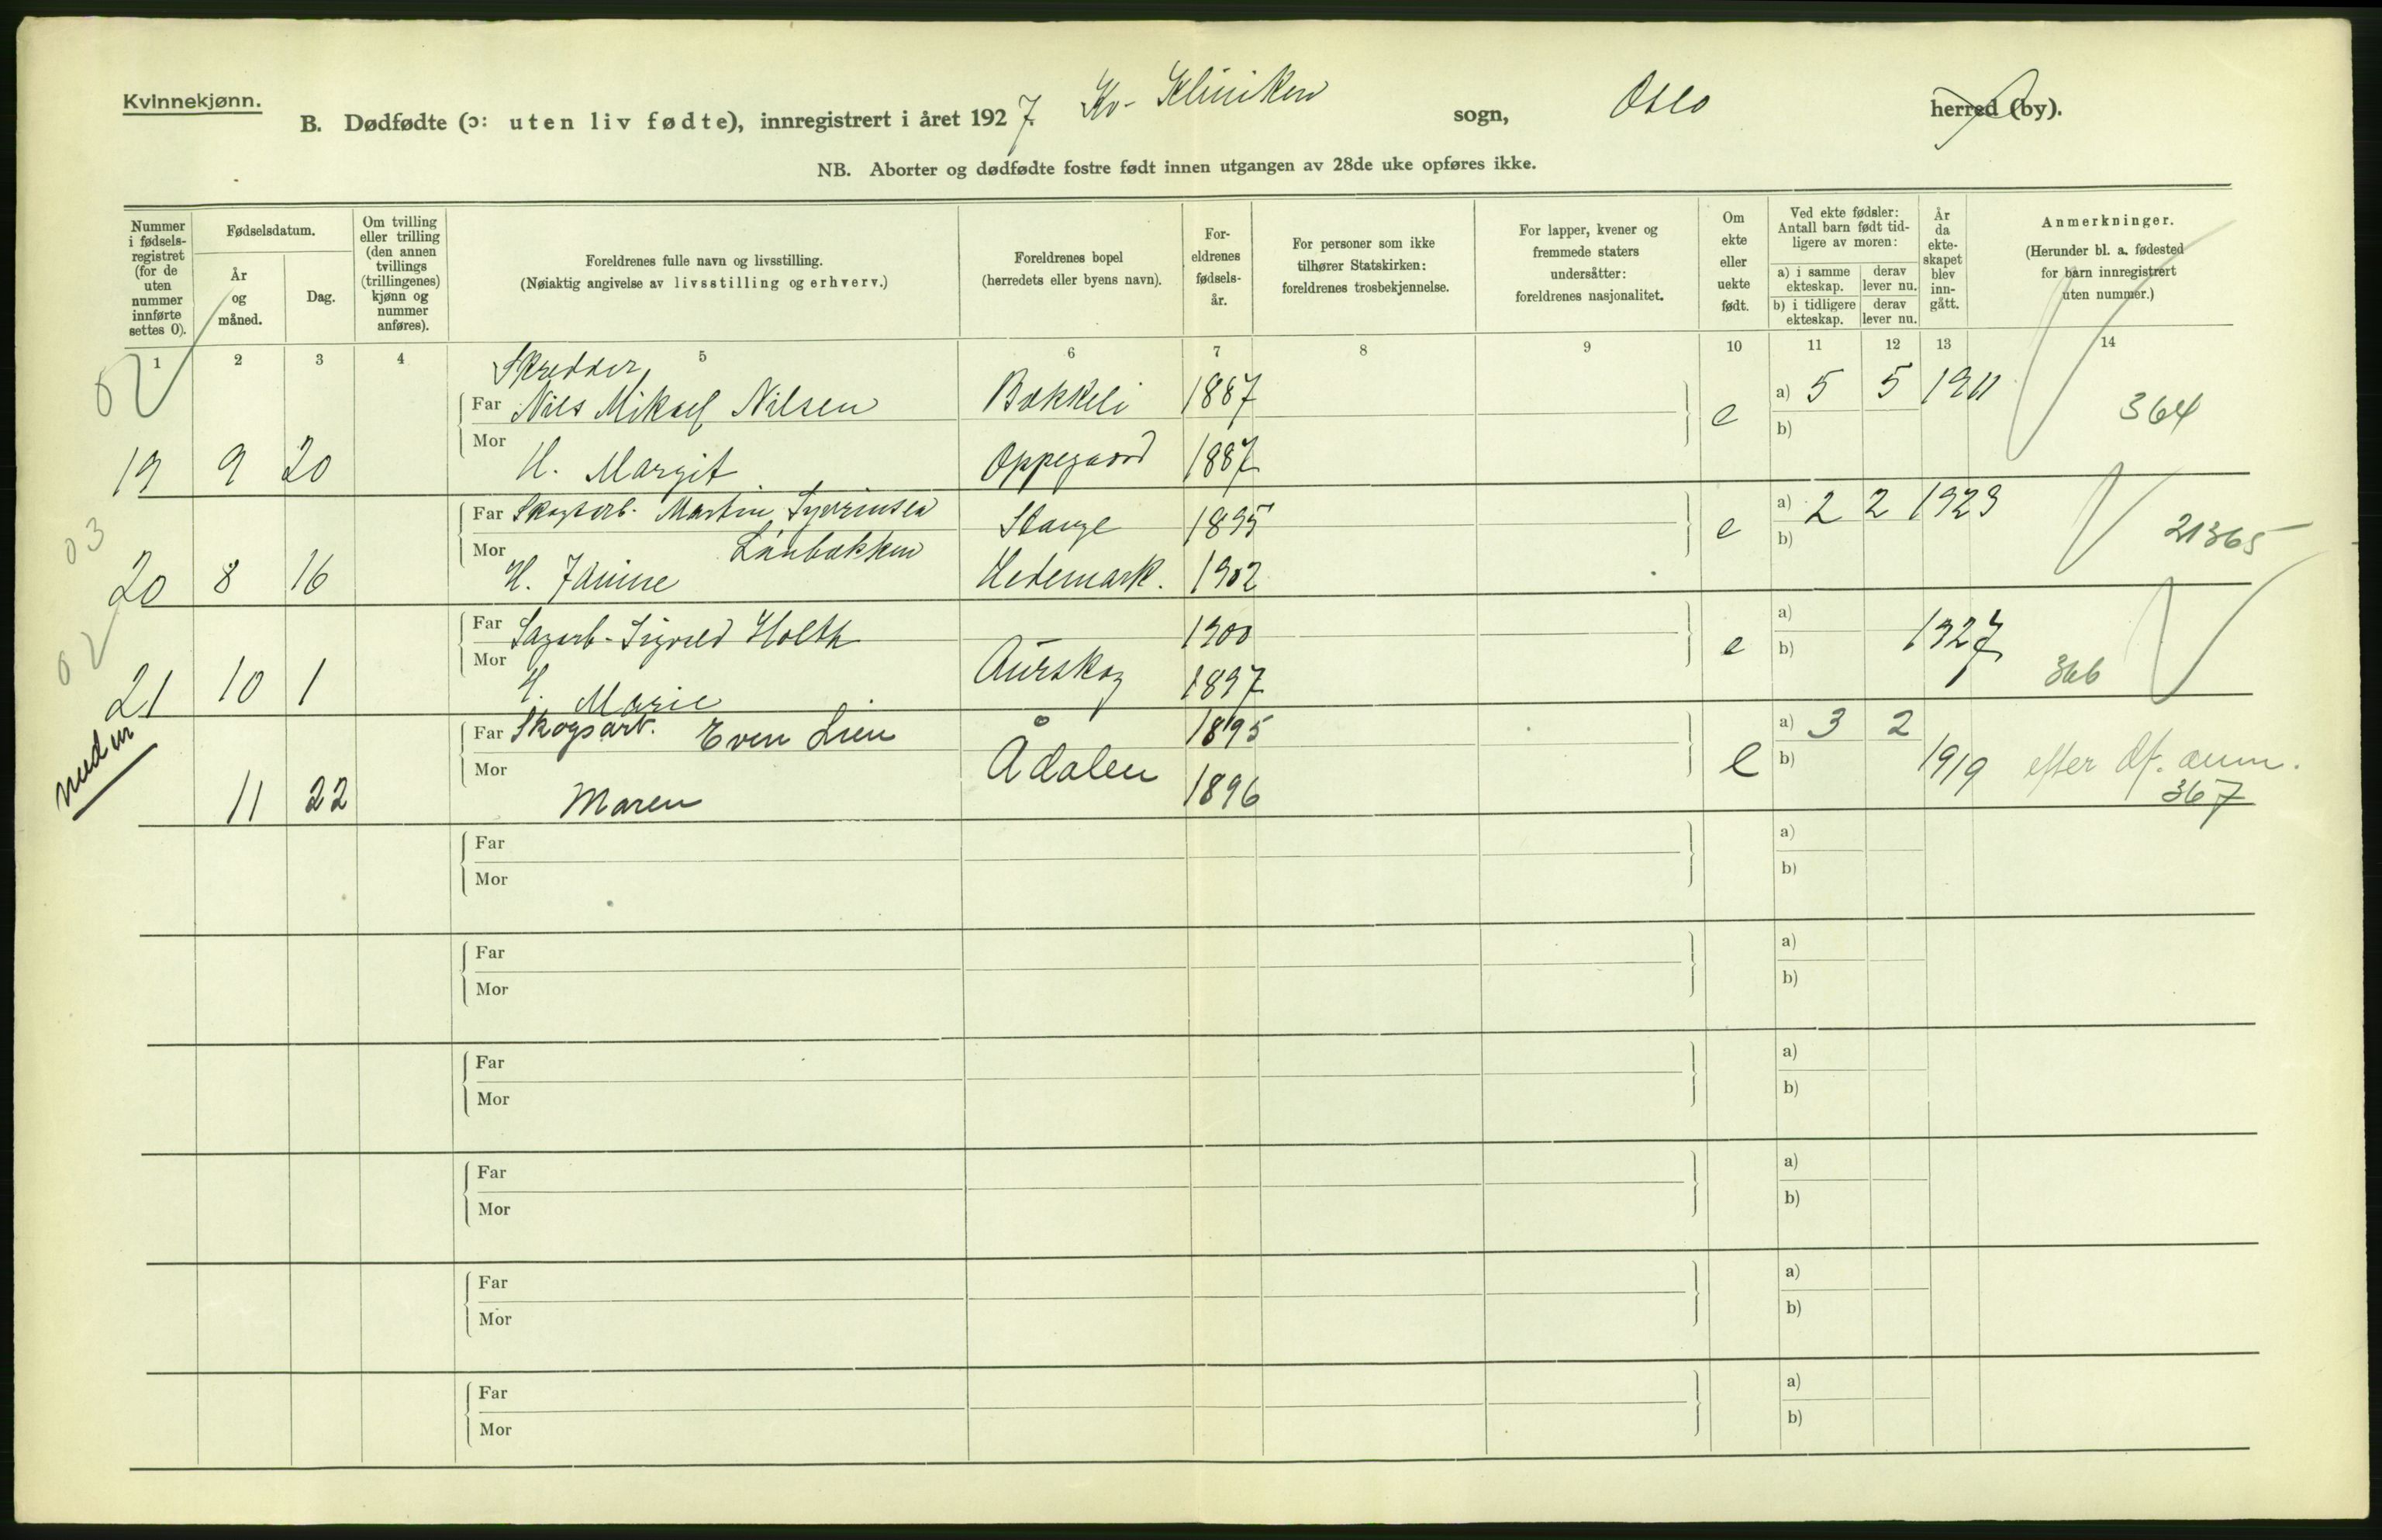 Kvinnekjønn.
B. Dødfødte (ɔ: uten liv fødte), innregistrert i året 1927. Kv- Kliniken sogn, Oslo herred (by).
NB. Aborter og dødfødte fostre født innen utgangen av 28de uke opføres ikke.
Nummer i fødsels-registret (for de uten nummer innførte settes 0).
Fødselsdatum.
År og måned.
Dag.
Om tvilling eller trilling (den annen tvillings (trillingenes) kjønn og nummer anføres).
Foreldrenes fulle navn og livsstilling.
(Nøiaktig angivelse av livsstilling og erhverv.)
Foreldrenes bopel
(herredets eller byens navn).
For-eldrenes fødsels-år.
For personer som ikke tilhører Statskirken: foreldrenes trosbekjennelse.
For lapper, kvener og fremmede staters undersåtter: foreldrenes nasjonalitet.
Om ekte eller uekte født.
Ved ekte fødsler: Antall barn født tid-ligere av moren:
a) i samme ekteskap. derav lever nu.
b) i tidligere ekteskap. derav lever nu.
År da ekte-skapet blev inn-gått.
Anmerkninger.
(Herunder bl. a. fødested for barn innregistrert uten nummer.)
1 2 3 4 5 6 7 8 9 10 11 12 13 14
Skredder
Far Nils Mikael Nilsen Bakkeli 1887 e a) 5 5 1911 364
19 9 20 Mor H. Margit Oppegaard 1887 b)
03
Far Skogsarb. Martin Syverinsen Stange 1895 e a) 2 2 1923 21365
Linbakken
20 8 16 Mor H. Janine Hedemark. 1902 b)
02
Far Sagarb- Sigvald Holth Aurskog 1900 e a) 1927 366
21 10 1 Mor H. Marie 1897 b)
med nr
Far Skogsarb. Even Lien Ådalen 1895 e a) 3 2 1919 efter Df. anm.
11 22 Mor Maren 1896 b) 367
Far a)
Mor b)
Far a)
Mor b)
Far a)
Mor b)
Far a)
Mor b)
Far a)
Mor b)
Far a)
Mor b)